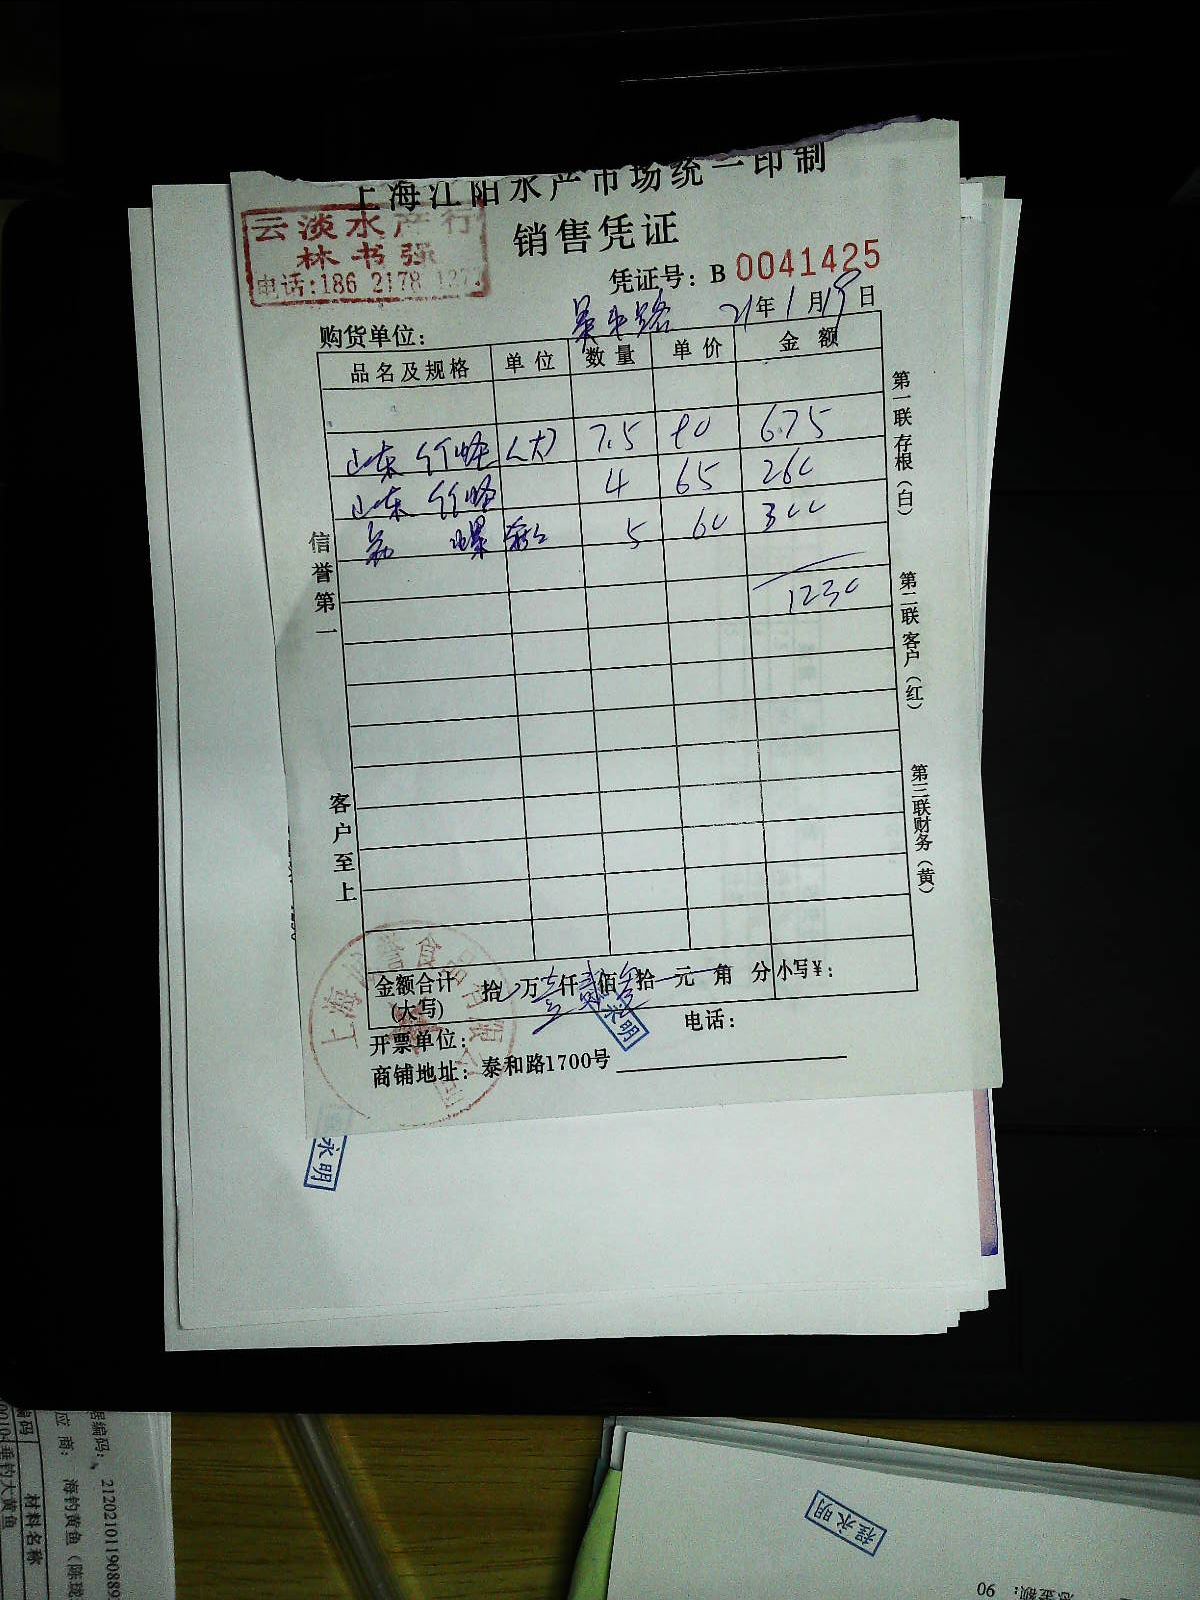 上海江阳水产市场统一印制
云淡水产行
林书强
电话:186 2178 127
销售凭证
凭证号: B 0041425
购货单位:
21年1月19日
品名及规格 单位 数量 单价 金额
山东竹蛏(大) 7.5 90 675
山东竹蛏 4 65 260
螺 5 60 300
1230
信誉第一
客户至上
第一联存根(白)
第二联客户(红)
第三联财务(黄)
金额合计(大写) 拾 万壹仟贰佰叁拾 元 角 分 小写¥:
开票单位: 电话:
商铺地址: 泰和路1700号
永明
永明
程永明
居编码: 2120210119088
应商: 海钓黄鱼(陈珑
编码 材料名称
垂钓大黄鱼
总金额: 90